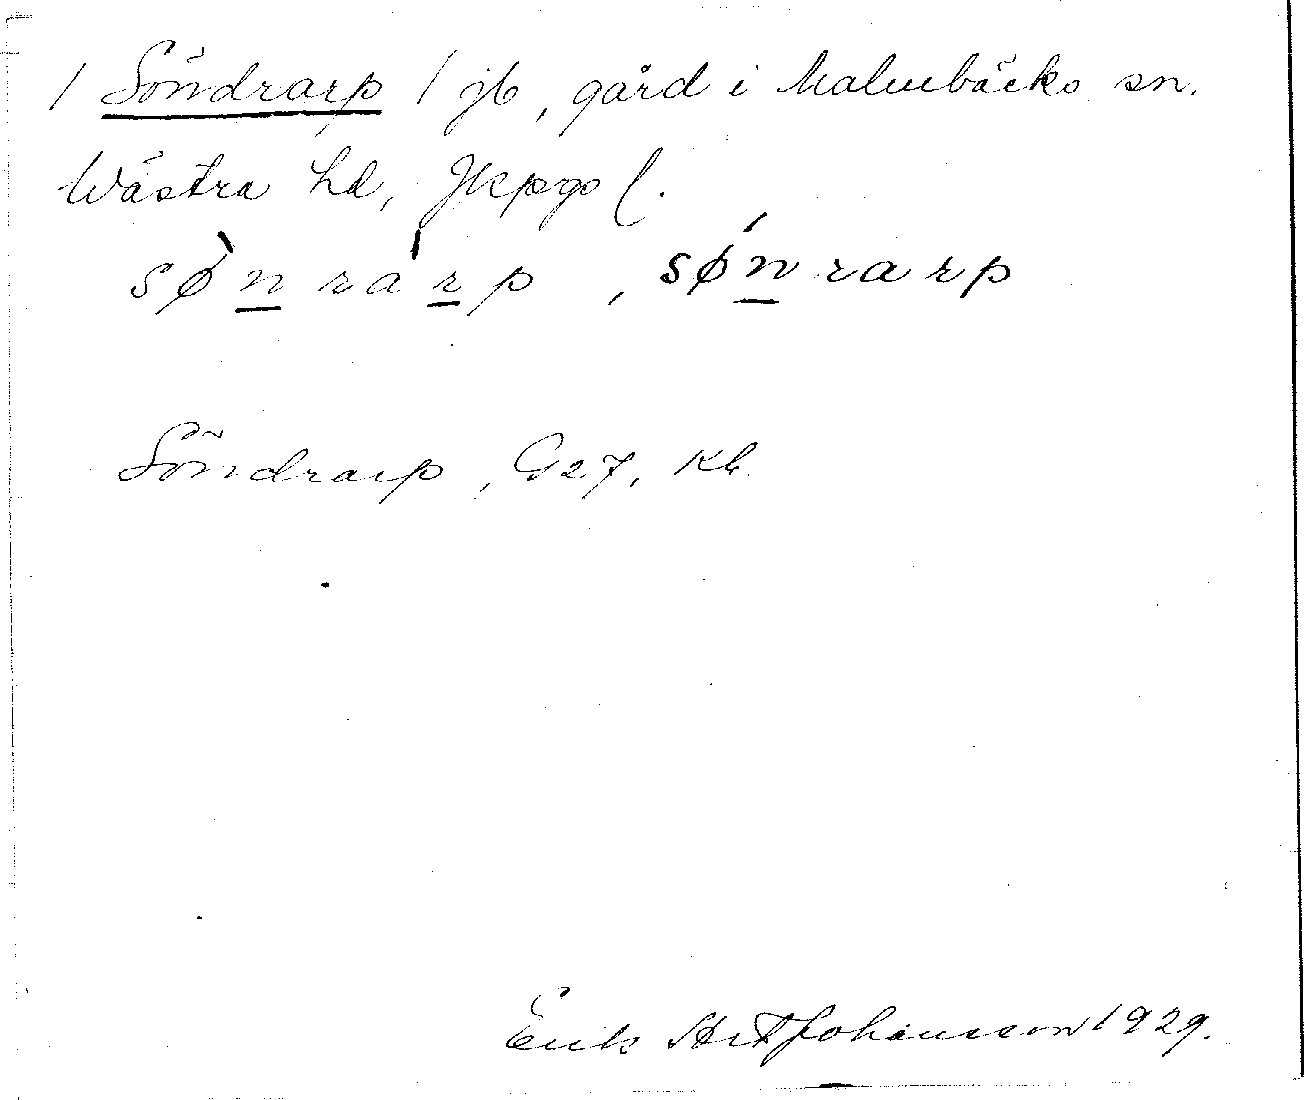 / Söndrarp / jb, gård i Malmbäcks sn.
Wästra hd, Jkpgs l.
sø̀n̲rár̲p, sǿn̲rarp
Söndrarp, G27, Kb.
Erik Johansson 1929.